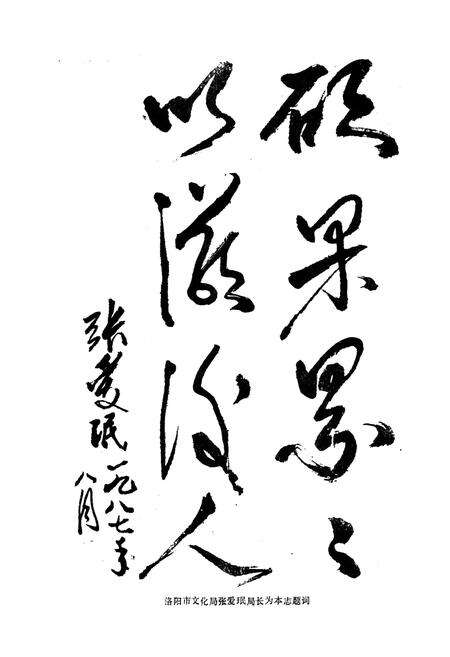 硕果累々
以滋后人
张爱珉一九八七年
八月
洛阳市文化局张爱珉局长为本志题词